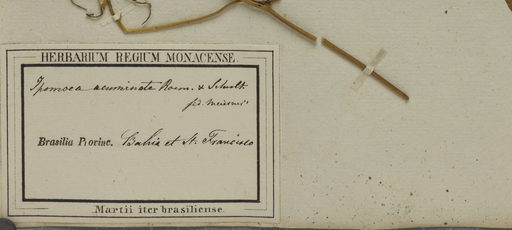 HERBARIUM REGIUM MONACENSE.
Ipomoea acuminata Roem. & Schult.
fid. Meisner
Brasilia Provinc. Bahia et St. Francisco
Martii iter brasiliense.